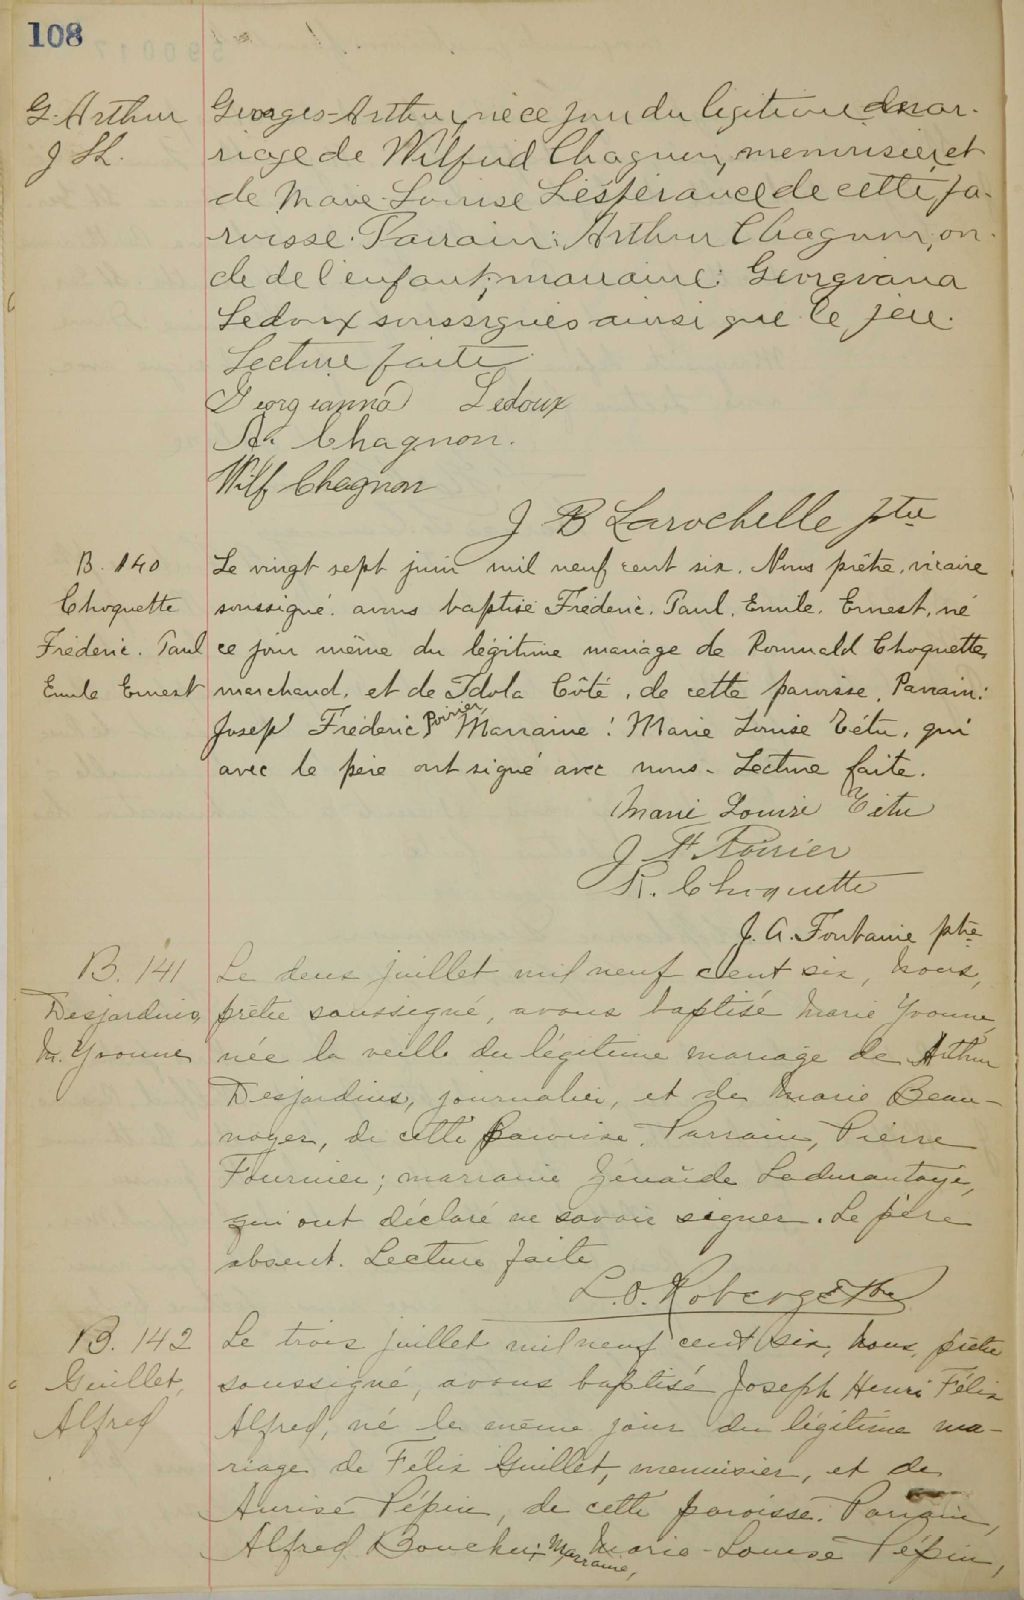 108
G. Arthur
Georges-Arthur, né ce jour du légitime mar-
riage de Wilfrid Chagnon, menuisier et
de Marie-Louise Lespérance de cette pa-
roisse. Parrain: Arthur Chagnon, on-
cle de l'enfant; marraine: Georgiana
Ledoux soussignés ainsi que le père.
Lecture faite.
Georgianna Ledoux
Ar Chagnon.
Wilf Chagnon
J B Larochelle ptre
B. 140
Choquette
Fréderic. Paul
Emile Ernest
Le vingt sept juin mil neuf cent six. Nous prêtre, vicaire
soussigné. avons baptisé Fréderic. Paul. Emile. Ernest, né
ce jour même du légitime mariage de Romuald Choquette,
marchand, et de Idola Côté, de cette paroisse. Parrain:
Josep Fréderic Poirier, Marraine: Marie Louise Têtu, qui
avec le père ont signé avec nous. Lecture faite.
Marie Louise Têtu
J F Poirier
R. Choquette
J. A. Fontaine ptre
B. 141
Desjardins,
M. Yvonne
Le deux juillet mil neuf cent six, Nous,
prêtre soussigné, avons baptisé Marie Yvonne,
née la veille du légitime mariage de Arthur
Desjardins, journalier, et de Marie Beau-
noyer, de cette paroisse. Parrain, Pierre
Fournier; marraine Zénaïde Ladurantaye,
qui ont déclaré ne savoir signer. Le père
absent. Lecture faite
L. O. Roberge Ptre
B. 142
Guillet,
Alfred
Le trois juillet mil neuf cent six, Nous, prêtre
soussigné, avons baptisé Joseph Henri Félix
Alfred, né le même jour du légitime ma-
riage de Félix Guillet, menuisier, et de
Aurise Pépin, de cette paroisse. Parrain,
Alfred Boucher; Marraine, Marie-Louise Pépin,